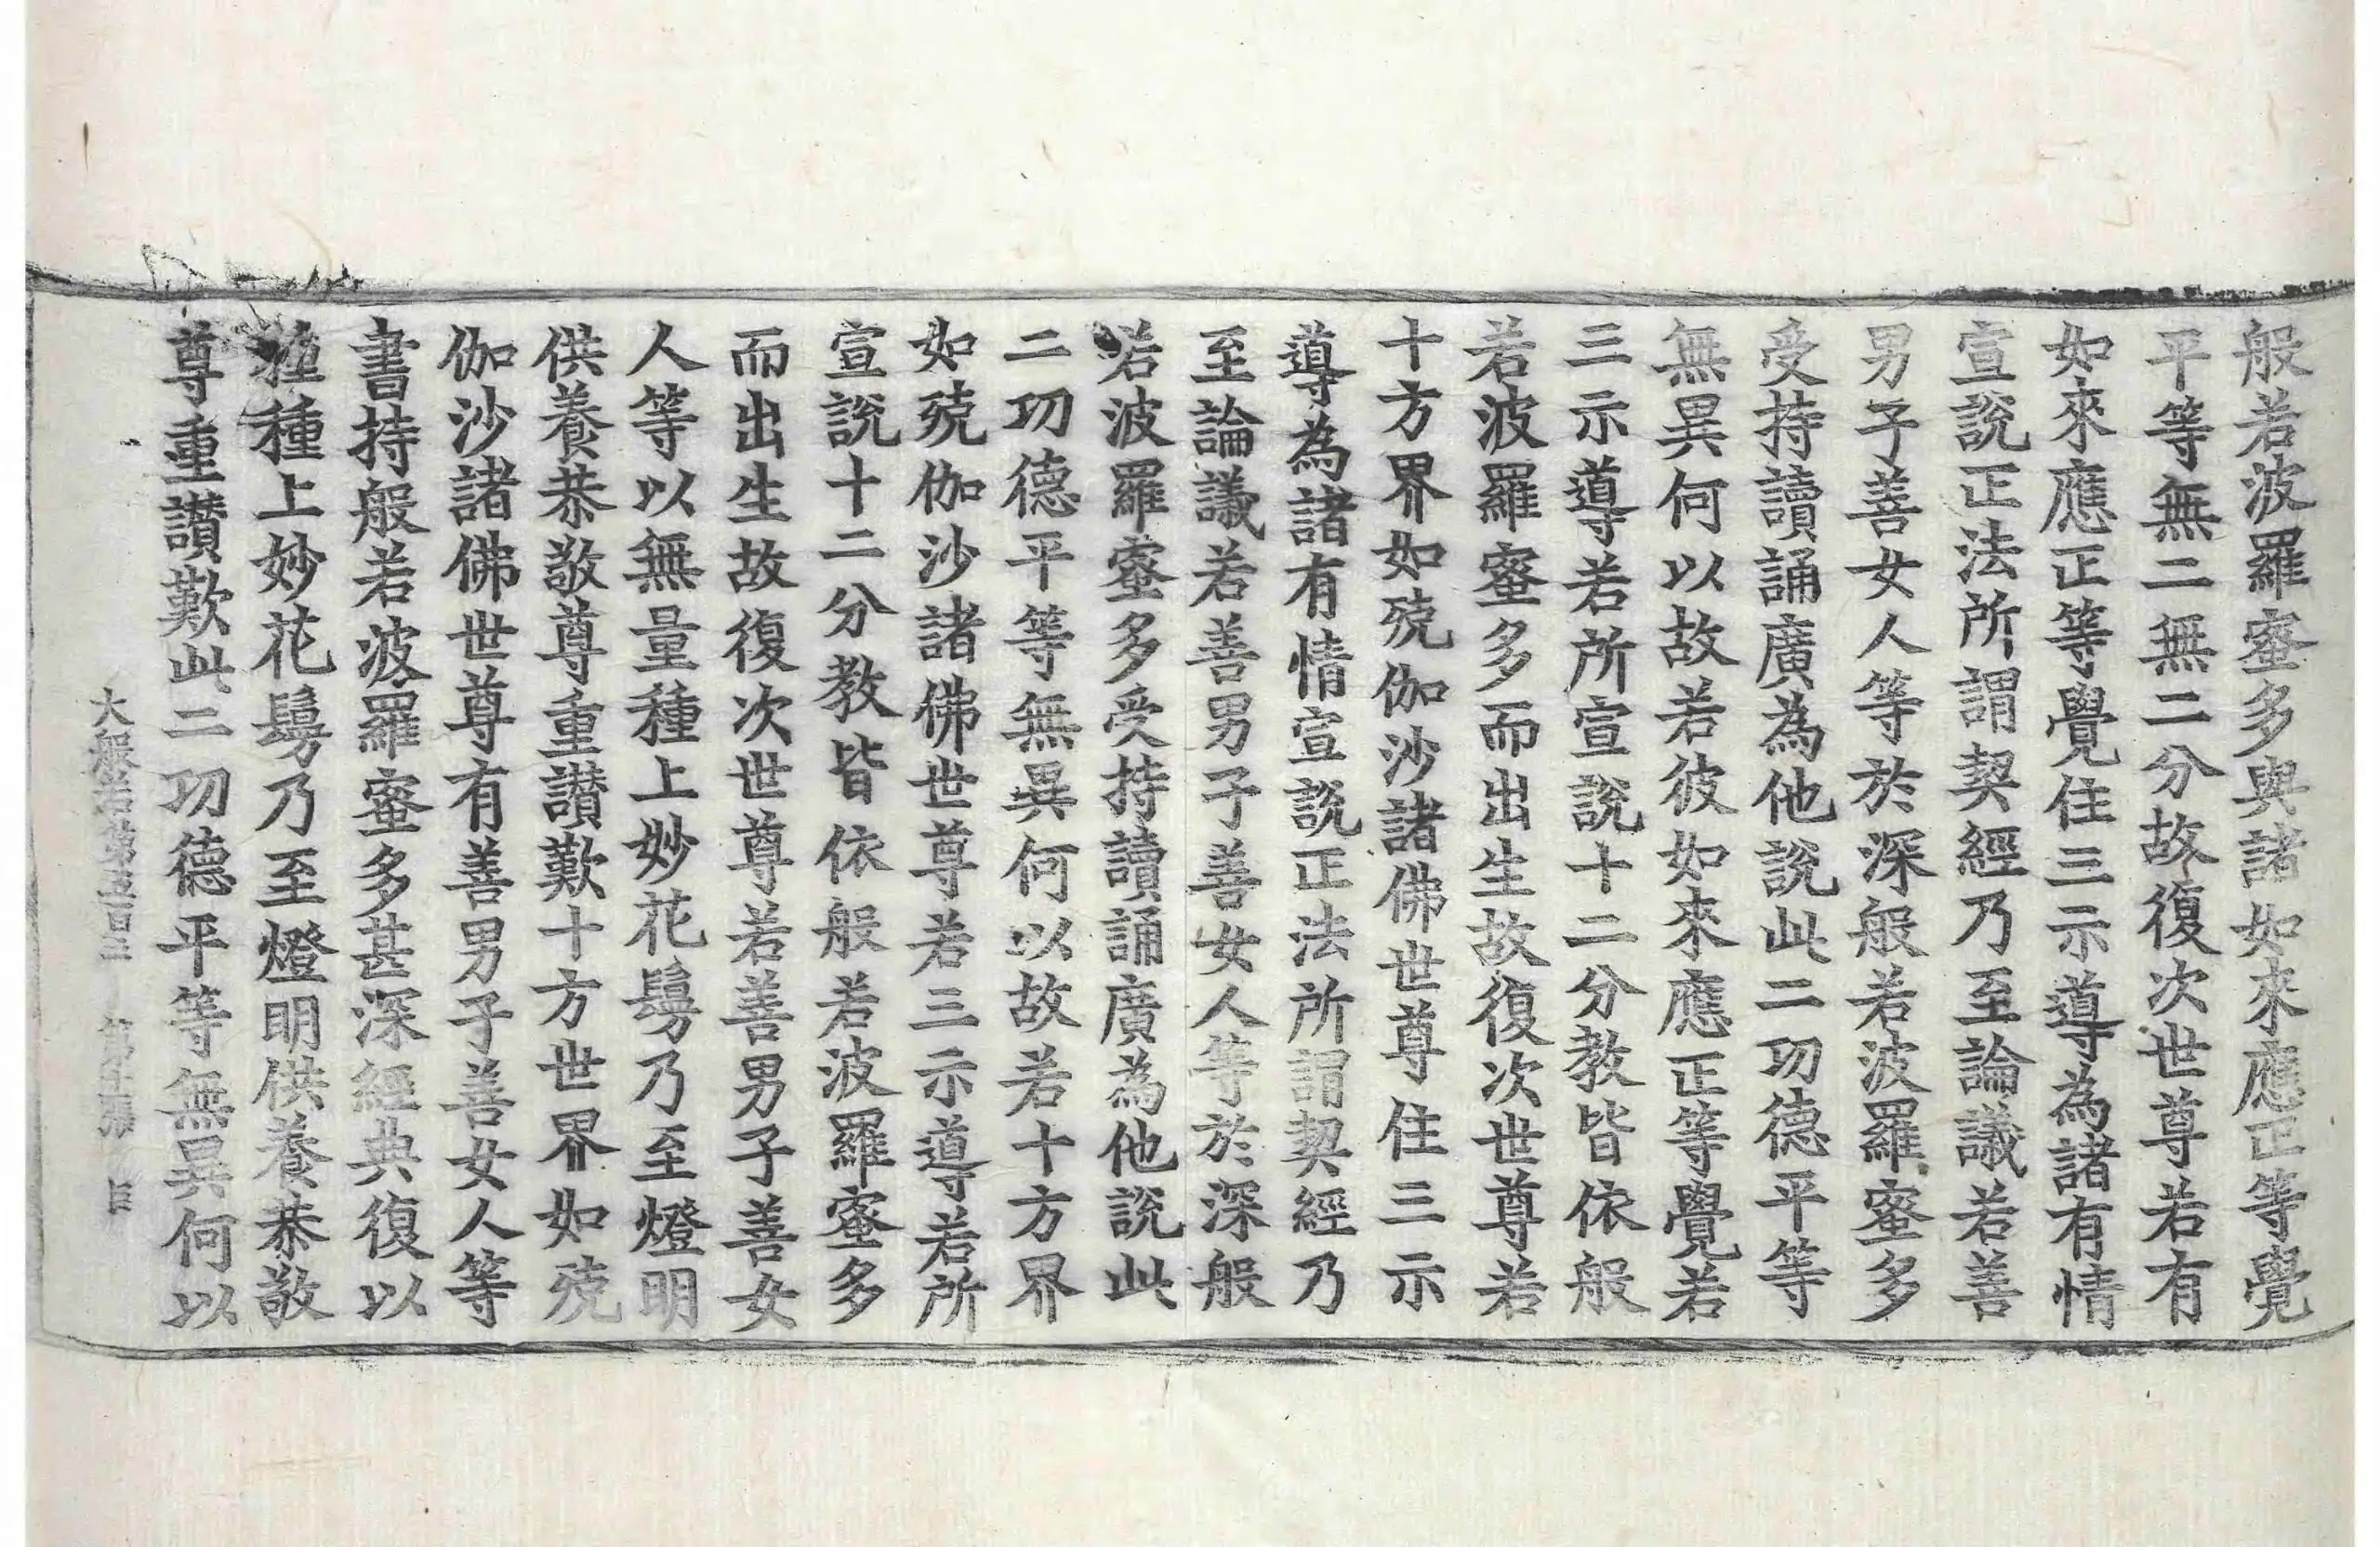 般若波羅蜜多與諸如來應正等覺
平等無二無二分故復次世尊若有
如來應正等覺住三示導為諸有情
宣說正法所謂契經乃至論議若善
男子善女人等於深般若波羅蜜多
受持讀誦廣為他說此二功德平等
無異何以故若彼如來應正等覺若
三示導若所宣說十二分教皆依般
若波羅蜜多而出生故復次世尊若
十方界如殑伽沙諸佛世尊住三示
導為諸有情宣說正法所謂契經乃
至論議若善男子善女人等於深般
若波羅蜜多受持讀誦廣為他說此
二功德平等無異何以故若十方界
如殑伽沙諸佛世尊若三示導若所
宣說十二分教皆依般若波羅蜜多
而出生故復次世尊若善男子善女
人等以無量種上妙花鬘乃至燈明
供養恭敬尊重讚歎十方世界如殑
伽沙諸佛世尊有善男子善女人等
書持般若波羅蜜多甚深經典復以
種種上妙花鬘乃至燈明供養恭敬
尊重讚歎此二功德平等無異何以
大般若